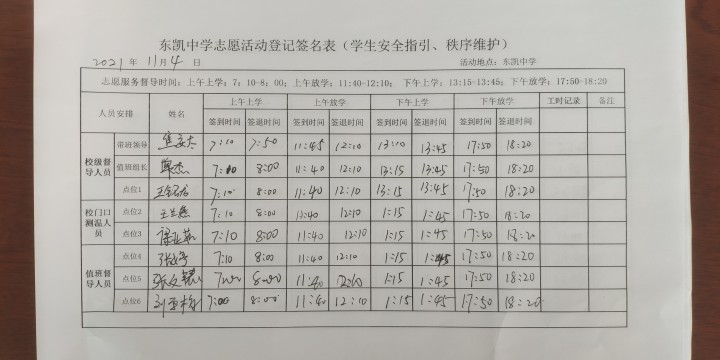 东凯中学志愿活动登记签名表（学生安全指引、秩序维护）
2021 年 11 月 4 日 活动地点：东凯中学
志愿服务督导时间：上午上学：7：10-8：00；上午放学：11:40-12:10； 下午上学：13:15-13:45；下午放学：17:50-18:20
人员安排 姓名 上午上学 上午放学 下午上学 下午放学 工时记录 备注
签到时间 签退时间 签到时间 签退时间 签到时间 签退时间 签到时间 签退时间
校级督导人员 带班领导 7:10 7:50 11:45 12:10 13:10 13:45 17:50 18:20
值班组长 7:10 8:00 11:40 12:10 13:15 13:45 17:50 18:20
点位1 7:10 8:00 11:40 12:10 13:15 13:45 17:50 18:20
校门口测温人员 点位2 7:10 8:00 11:40 12:10 1:15 1:45 17:50 18:20
点位3 7:10 8:00 11:40 12:10 1:15 1:45 17:50 18:20
值班督导人员 点位4 7:10 8:00 11:40 12:10 1:15 1:45 17:50 18:20
点位5 11:40 12:10 1:15 1:45 17:50 18:20
点位6 7:00 8:00 11:40 12:10 1:15 1:45 17:50 18:20